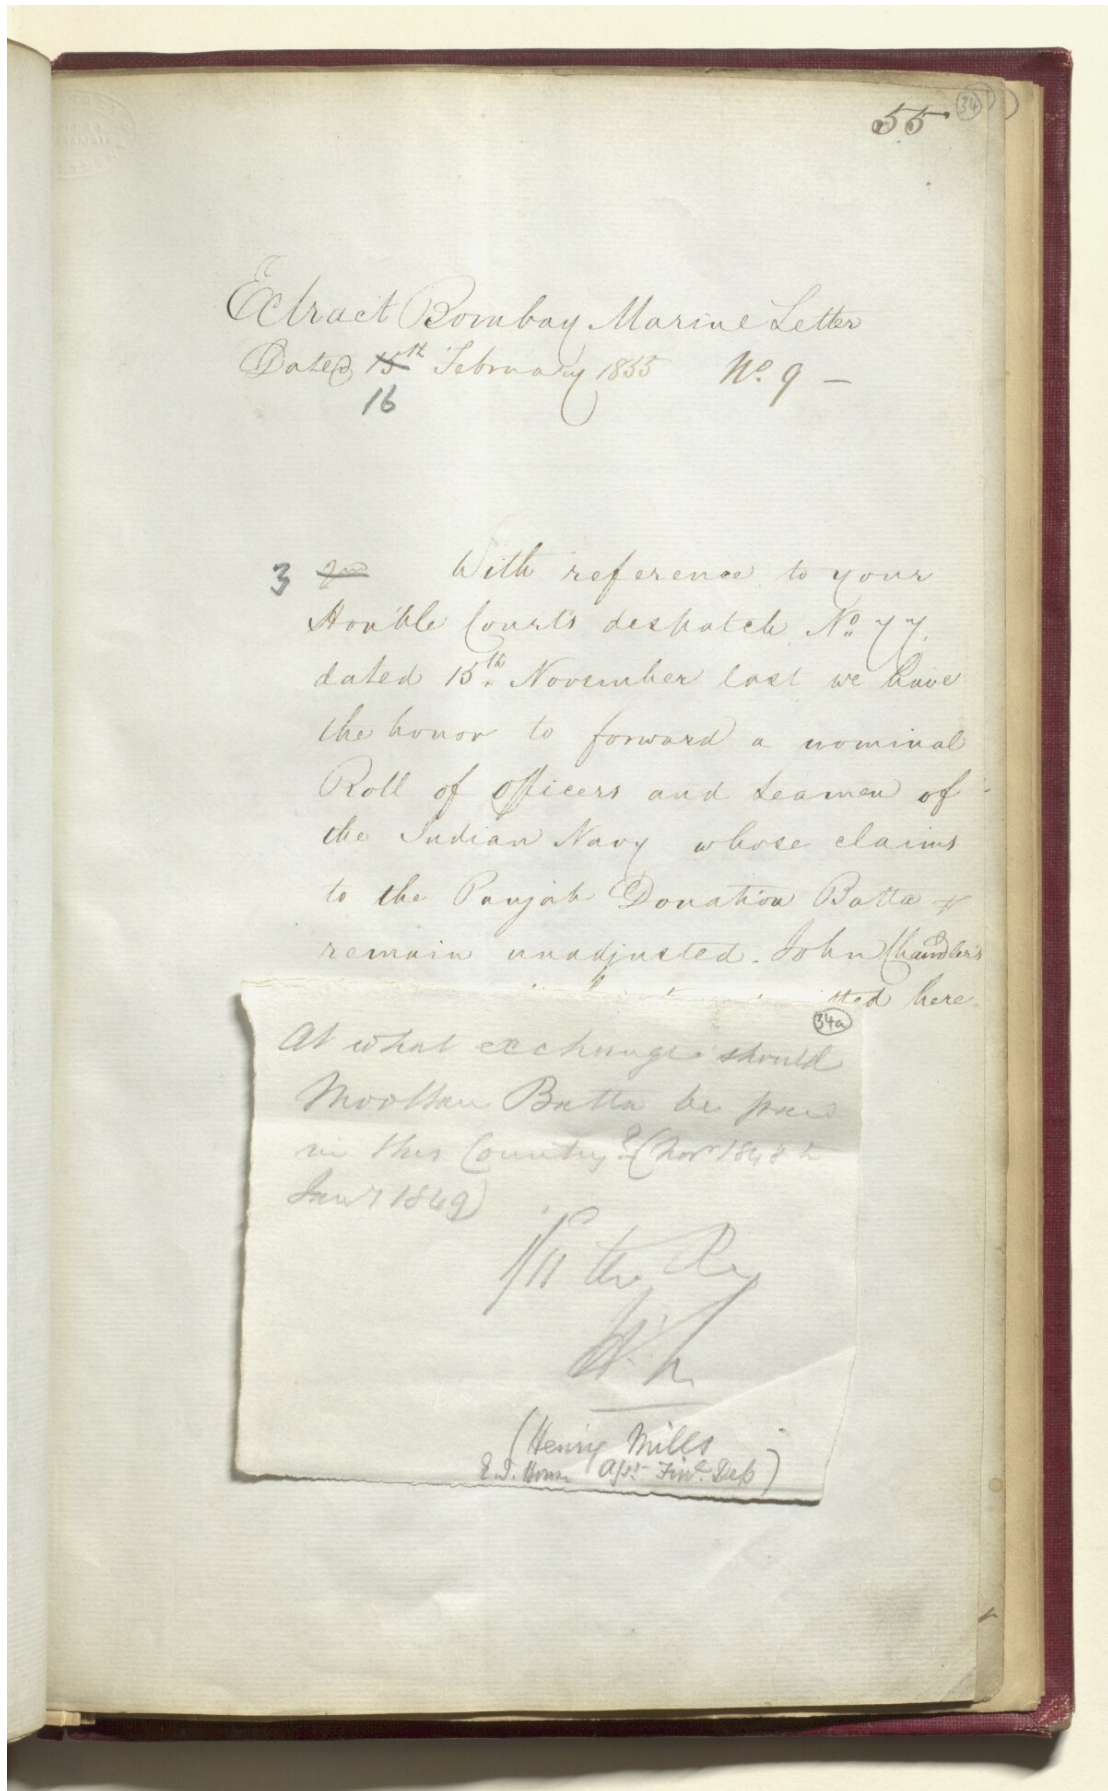 55 34
Extract Bombay Marine Letter
Dated 15th February 1855 No. 9 —
16
3 2nd With reference to your
Honble Court's despatch No 77.
dated 15th November last we have
the honor to forward a nominal
Roll of officers and Seamen of
the Indian Navy whose claims
to the Punjab Donation Batta
remain unadjusted. John Chandler's
tted here
34a
At what exchange should
Mooltan Batta be paid
in this Country? (Novr 1848 to
Jany 1849)
1/11 the Re
(Henry Mills
E.I. House Asst Finl Dep)